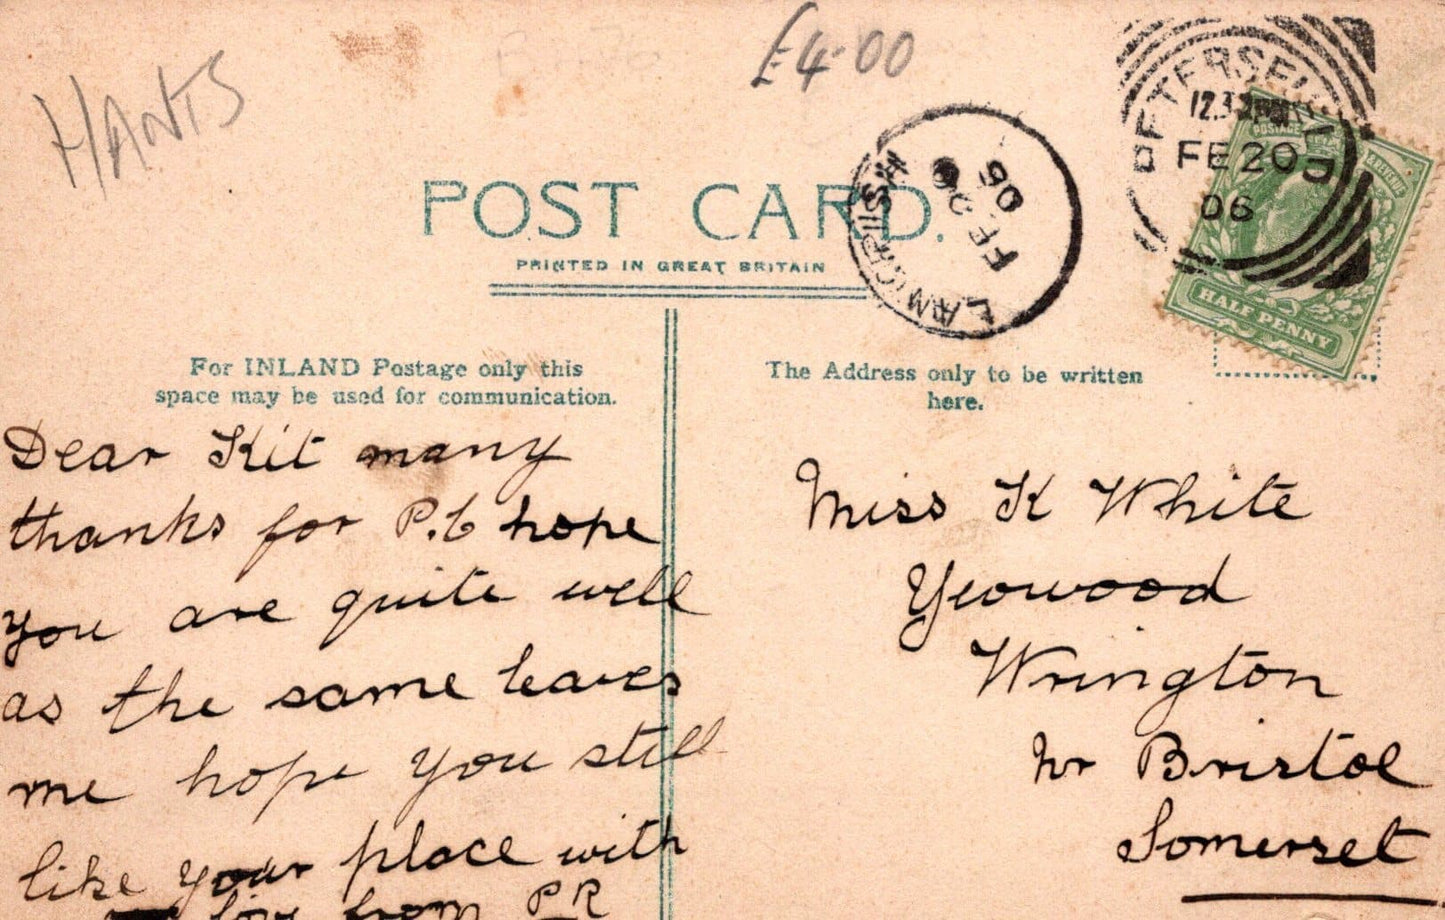 HANTS
£4.00
PETERSFIELD
FE 20
06
POSTAGE
HALF PENNY
FE 20
06
POST CARD.
PRINTED IN GREAT BRITAIN
For INLAND Postage only this
space may be used for communication.
Dear Kit many
thanks for P.C hope
you are quite well
as the same leaves
me hope you still
like your place with
love from PR
The Address only to be written
here.
Miss K White
Yeowood
Wrington
Nr Bristol
Somerset